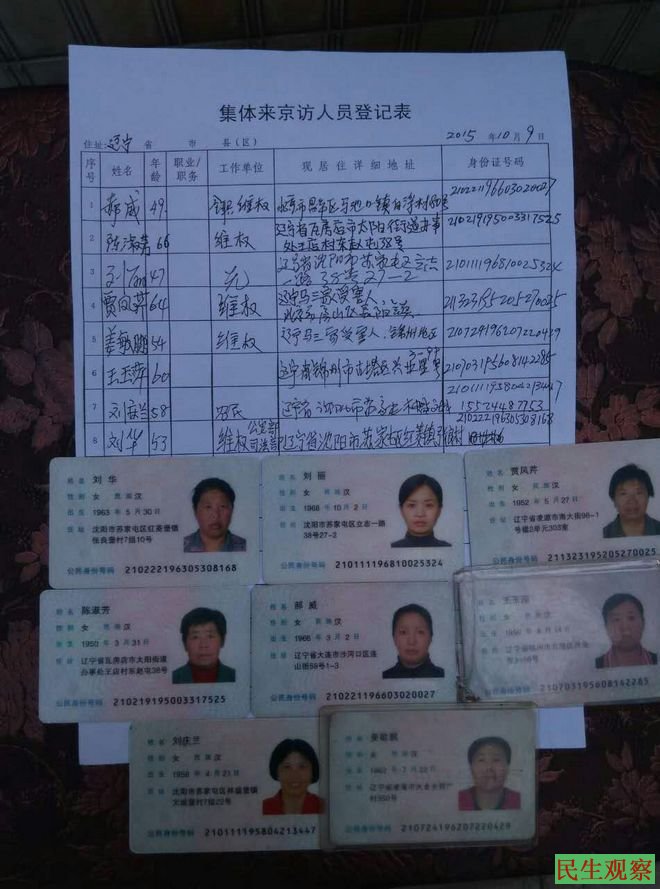 集体来京访人员登记表
住址: 辽宁 省 市 县(区) 2015 年 10 月 9 日
序号 姓名 年龄 职业/职务 工作单位 现居住详细地址 身份证号码
1 郝威 49 维权 210221196603020027
2 陈淑芳 66 维权 辽宁省瓦房店市太阳街道办事处王店村东赵屯38号 210219195003317525
3 刘丽 47 无 辽宁省沈阳市苏家屯区立志一路38号27-2 210111196810025324
4 贾凤芹 64 维权 辽宁马三家受害人 211323195205270025
5 姜敏 54 维权 辽宁马三家受害人 210724196207220429
6 王玉萍 60 辽宁省锦州市古塔区 210703195608142285
7 刘庆兰 58 农民 辽宁省沈阳市苏家屯 210111195804213447
15524487753
8 刘华 53 维权 辽宁省沈阳市苏家屯区红菱镇张良堡村 210222196305308168
姓名 刘华
性别 女 民族 汉
出生 1963 年 5 月 30 日
住址 沈阳市苏家屯区红菱堡镇
张良堡村7组10号
公民身份号码 210222196305308168
姓名 刘丽
性别 女 民族 汉
出生 1968 年 10 月 2 日
住址 沈阳市苏家屯区立志一路
38号27-2
公民身份号码 210111196810025324
姓名 贾凤芹
性别 女 民族 汉
出生 1952 年 5 月 27 日
住址 辽宁省凌源市南大街96-1
号楼2单元303室
公民身份号码 211323195205270025
姓名 陈淑芳
性别 女 民族 汉
出生 1950 年 3 月 31 日
住址 辽宁省瓦房店市太阳街道
办事处王店村东赵屯38号
公民身份号码 210219195003317525
姓名 郝威
性别 女 民族 汉
出生 1966 年 3 月 2 日
住址 辽宁省大连市沙河口区连
山街59号1-3
公民身份号码 210221196603020027
姓名 王玉萍
性别 女 民族 汉
出生 1956 年 8 月 14 日
住址 辽宁省锦州市古塔区
公民身份号码 210703195608142285
姓名 刘庆兰
性别 女 民族 汉
出生 1958 年 4 月 21 日
住址 沈阳市苏家屯区林盛堡镇
村7组22号
公民身份号码 210111195804213447
姓名 姜敏
性别 女 民族 汉
出生 1962 年 7 月 22 日
住址 辽宁省凌海市大
村350号
公民身份号码 210724196207220429
民生观察